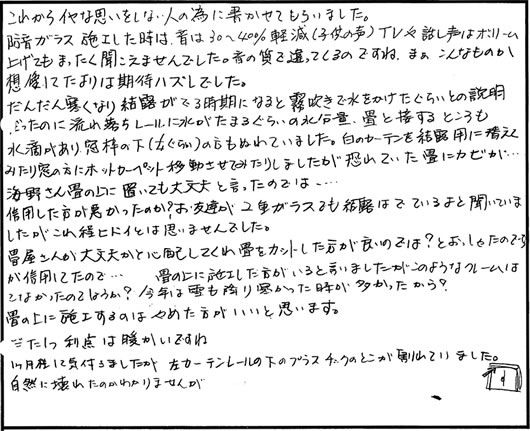 これからイヤな思いをしない人の為に書かせてもらいました。
防音ガラス施工した時は、音は30〜40%軽減(子供の声)TVや話し声はボリーム
上げてもまったく聞こえませんでした。音の質で違ってくるのですね、まぁこんなものか
想像してたよりは期待ハズレでした。
だんだん寒くなり結露がでる時期になると霧吹きで水をかけたぐらいとの説明
だったのに流れ落ちレールに水がたまるぐらいの水分量、畳と接するところも
水滴があり窓枠の下の方もぬれていました。白のカーテンを結露用に替え
みたり窓の方にホットカーペット移動させてみたりしましたが恐れていた畳にカビが…
海野さん畳の上に置いても大丈夫と言ったのでは……
信用した方が悪かったのか?お友達が2重ガラスでも結露はでているよと聞いていま
したがこれ程ヒドイとは思いませんでした。
畳屋さんが大丈夫かと心配してくれ畳をカットした方が良いのでは?とおっしゃったのです
が信用してたので… 畳の上に施工した方がいると言いましたがこのようなクレームは
でなかったのでしょうか?今年は雪も降り寒かった時が多かったから?
畳の上に施工するのはやめた方がいいと思います。
たった1つ利点は暖かいですね
1ヶ月程して気付きましたが左カーテンレールの下のプラスチックのとこが割れていました。
自然に壊れたのかわかりませんが